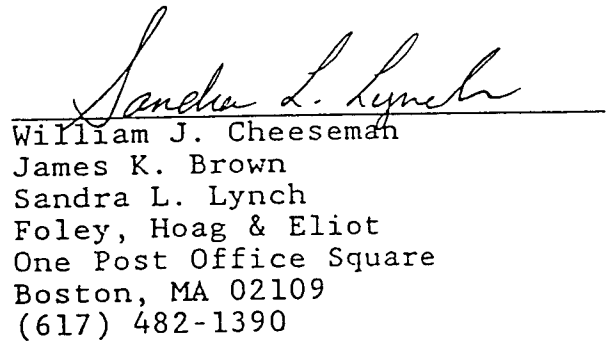 Sandra L. Lynch
William J. Cheeseman
James K. Brown
Sandra L. Lynch
Foley, Hoag & Eliot
One Post Office Square
Boston, MA 02109
(617) 482-1390